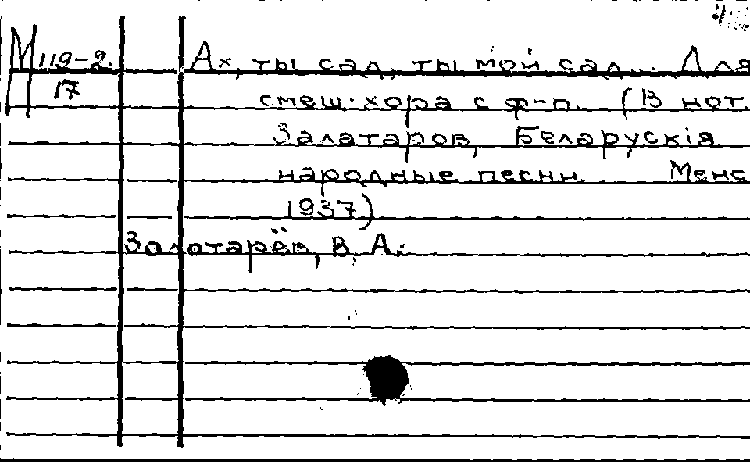 М 119-2 Ах, ты сад, ты мой сад... Для
17 смеш. хора с ф-п. (В нот.
Залатаров, Беларускія
народные песни. Менс
1937)
Залатарёв, В. А.